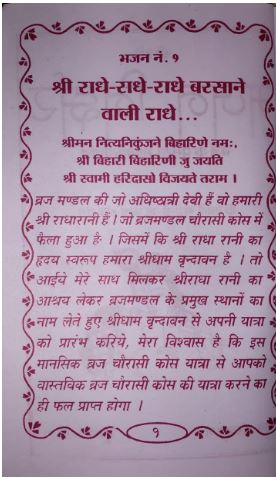 भजन नं. १
श्री राधे-राधे-राधे बरसाने
वाली राधे...
श्रीमन नित्यनिकुन्जने बिहारिणे नमः,
श्री बिहारी बिहारिणी जु जयति
श्री स्वामी हरिदासो विजयते तराम ।
व्रज मण्डल की जो अधिष्ठत्री देवी हैं वो हमारी
श्री राधारानी हैं । जो व्रजमण्डल चौरासी कोस में
फैला हुआ है । जिसमें कि श्री राधा रानी का
हृदय स्वरूप हमारा श्रीधाम वृन्दावन है । तो
आईये मेरे साथ मिलकर श्रीराधा रानी का
आश्रय लेकर व्रजमण्डल के प्रमुख स्थानों का
नाम लेते हुए श्रीधाम वृन्दावन से अपनी यात्रा
को प्रारंभ करिये, मेरा विश्वास है कि इस
मानसिक व्रज चौरासी कोस यात्रा से आपको
वास्तविक व्रज चौरासी कोस की यात्रा करने का
ही फल प्राप्त होगा ।
१